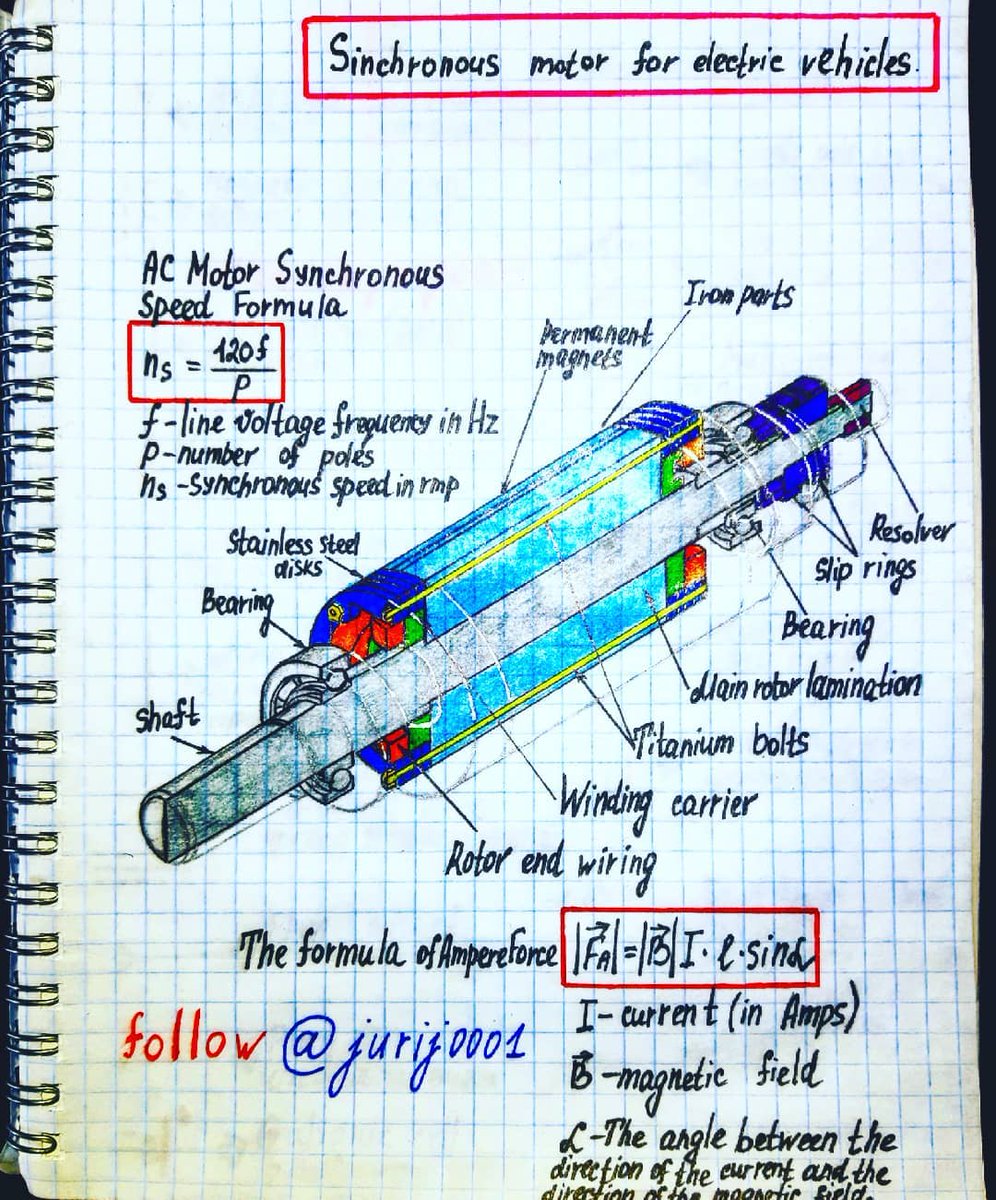 Sinchronous motor for electric vehicles.
AC Motor Synchronous
Speed Formula
ns = 120f / P
f - line voltage frequency in Hz
P - number of poles
ns - Synchronous speed in rmp
Iron parts
Permanent
magnets
Stainless steel
disks
Bearing
Shaft
Resolver
Slip rings
Bearing
Main rotor lamination
Titanium bolts
Winding carrier
Rotor end wiring
The formula of Ampere Force |F⃗A| = |B⃗| I · ℓ · sinα
I - current (in Amps)
B⃗ - magnetic field
α - The angle between the
direction of the current and the
direction of the magnetic field.
follow @jurij0001